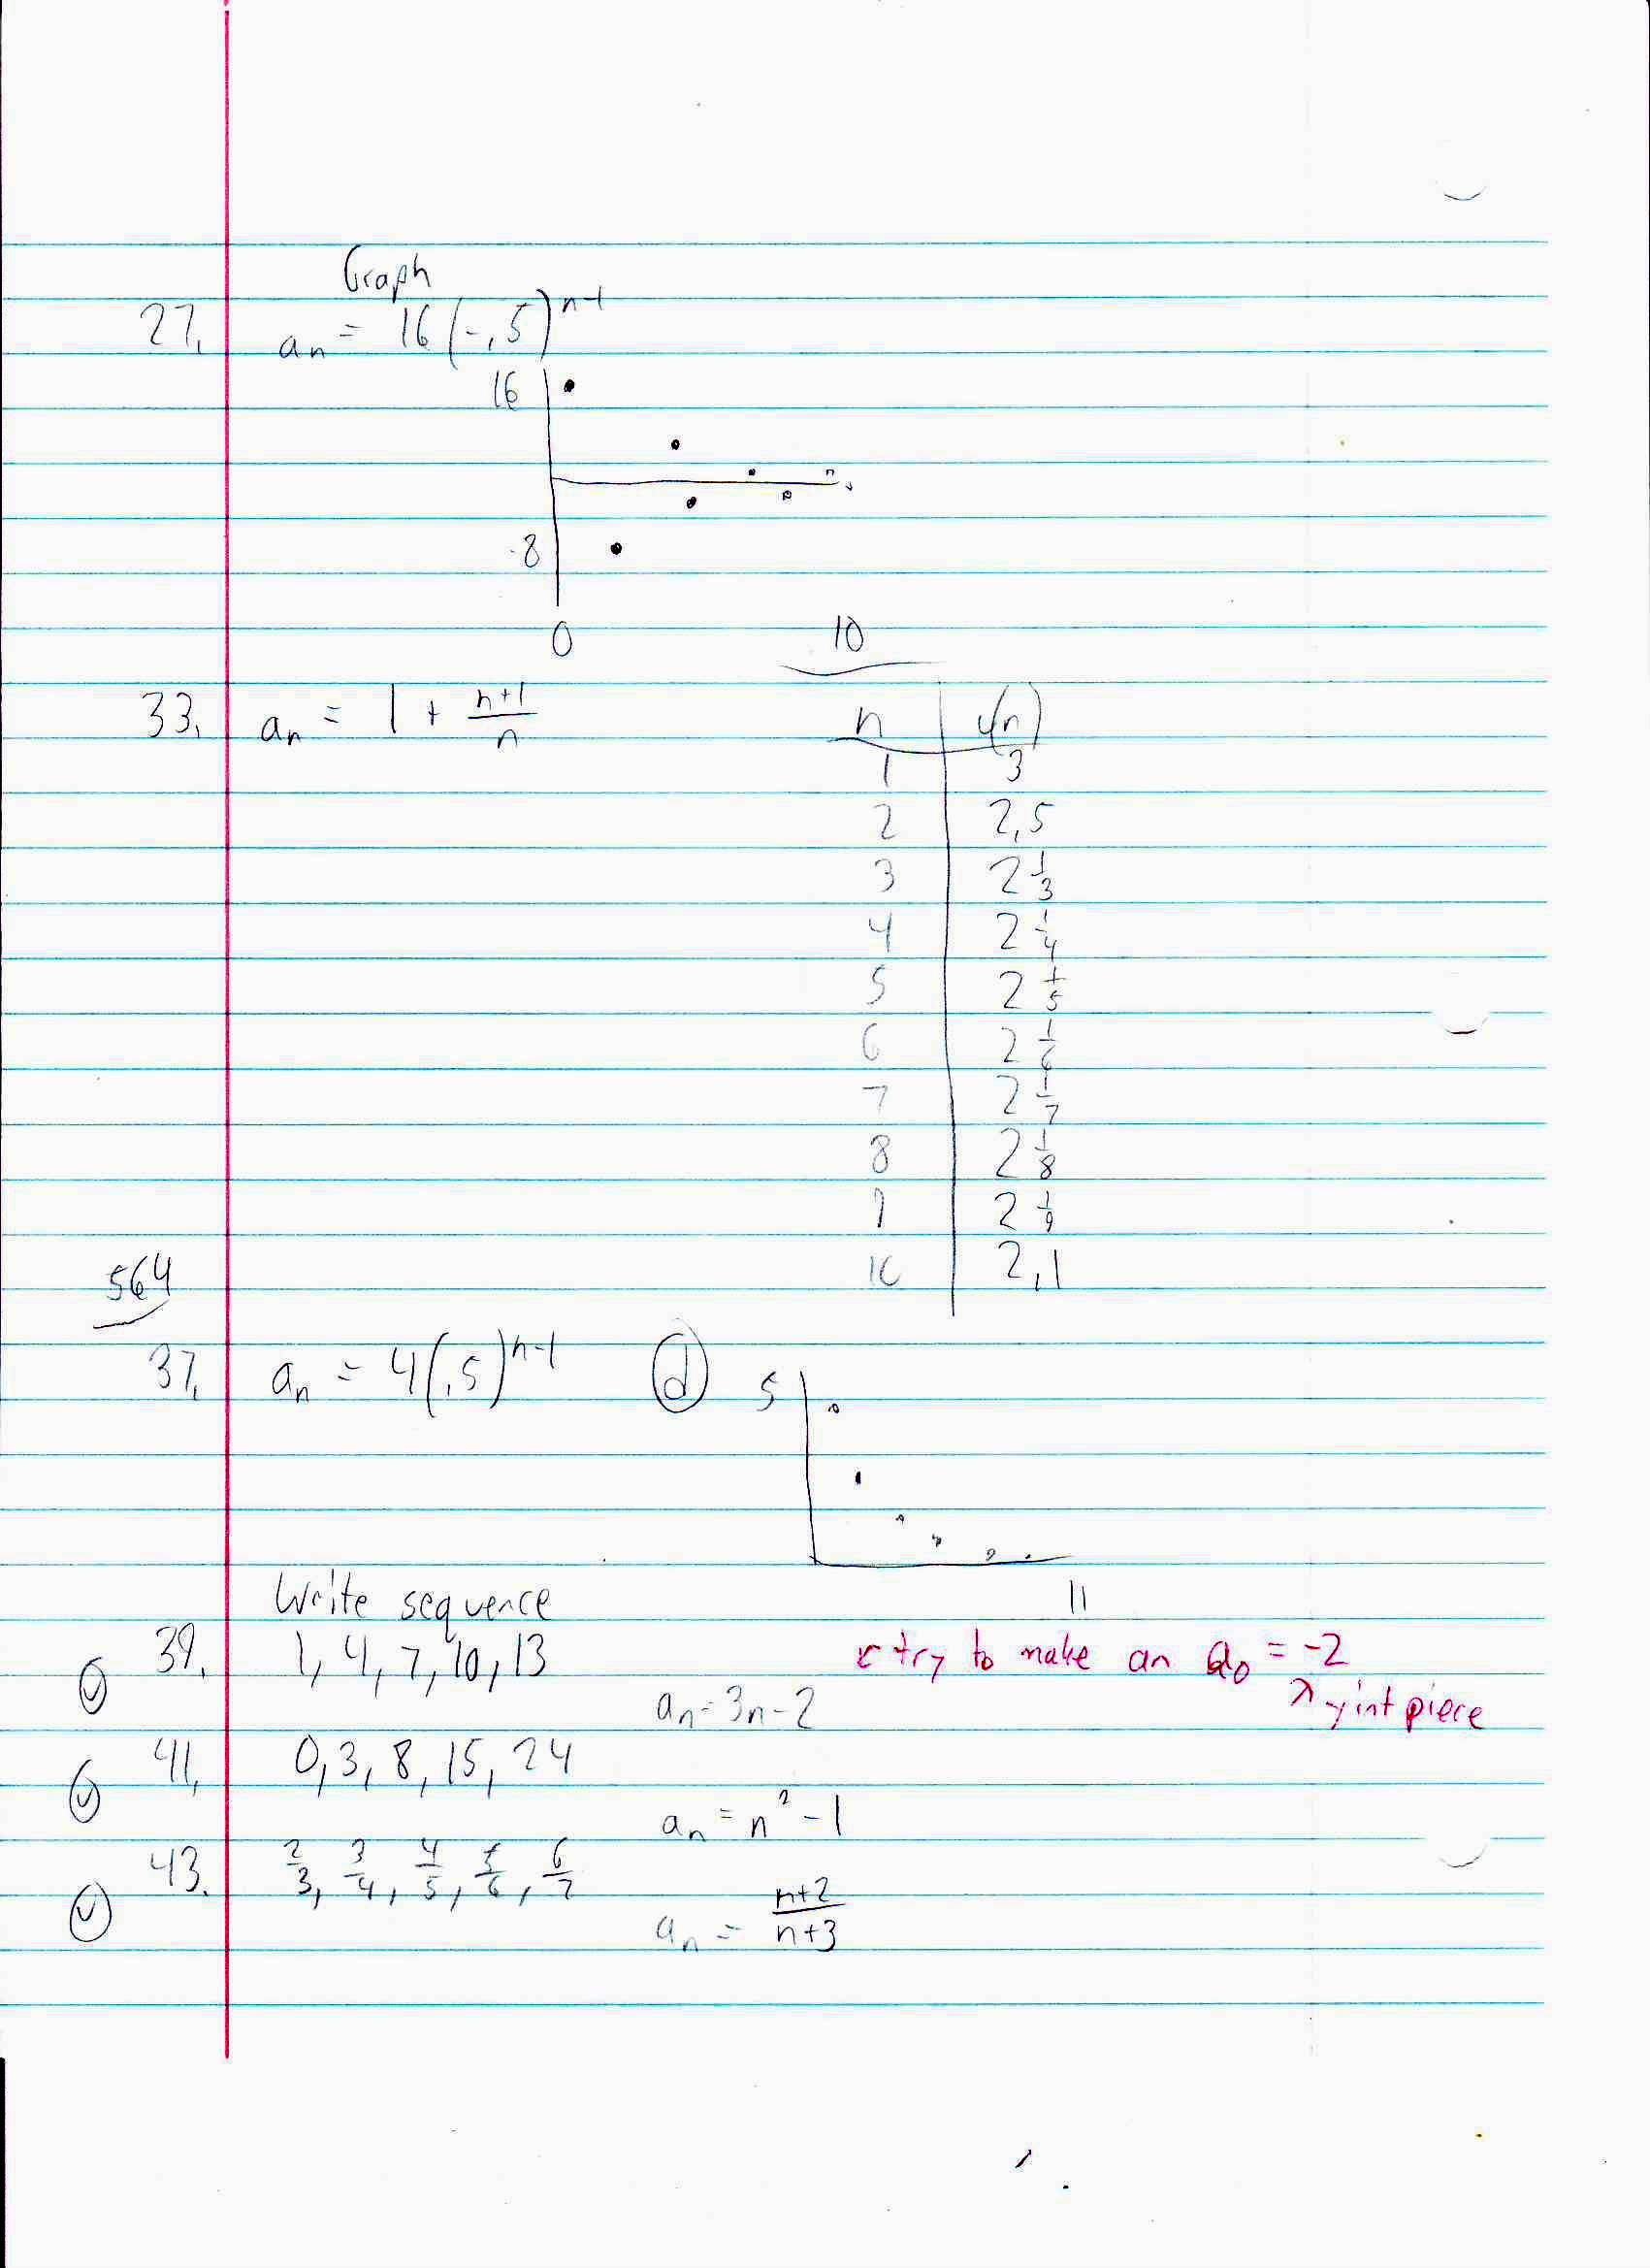 Graph
27. aₙ = 16(-.5)ⁿ⁻¹
16
-8
0 10
33. aₙ = 1 + (n+1)/n
n u(n)
1 3
2 2.5
3 2 1/3
4 2 1/4
5 2 1/5
6 2 1/6
7 2 1/7
8 2 1/8
9 2 1/9
10 2.1
564
37. aₙ = 4(.5)ⁿ⁻¹ (d) 5
11
Write sequence
39. 1, 4, 7, 10, 13 try to make an a₀ = -2
aₙ = 3n-2 y int piece
41. 0, 3, 8, 15, 24
aₙ = n² - 1
43. 2/3, 3/4, 4/5, 5/6, 6/7
aₙ = (n+2)/(n+3)